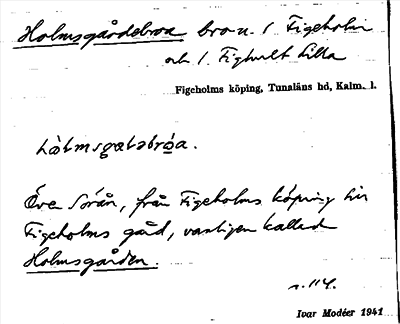 Holmsgårdebroa bro u. 1 Figeholm
och 1. Fighult Lilla
Figeholms köping, Tunaläns hd, Kalm. l.
hòlmsgœləbróa.
Öve Sörån, från Figeholms köping till
Figeholms gård, vanligen kallad
Holmsgården.
s. 114.
Ivar Modéer 1941